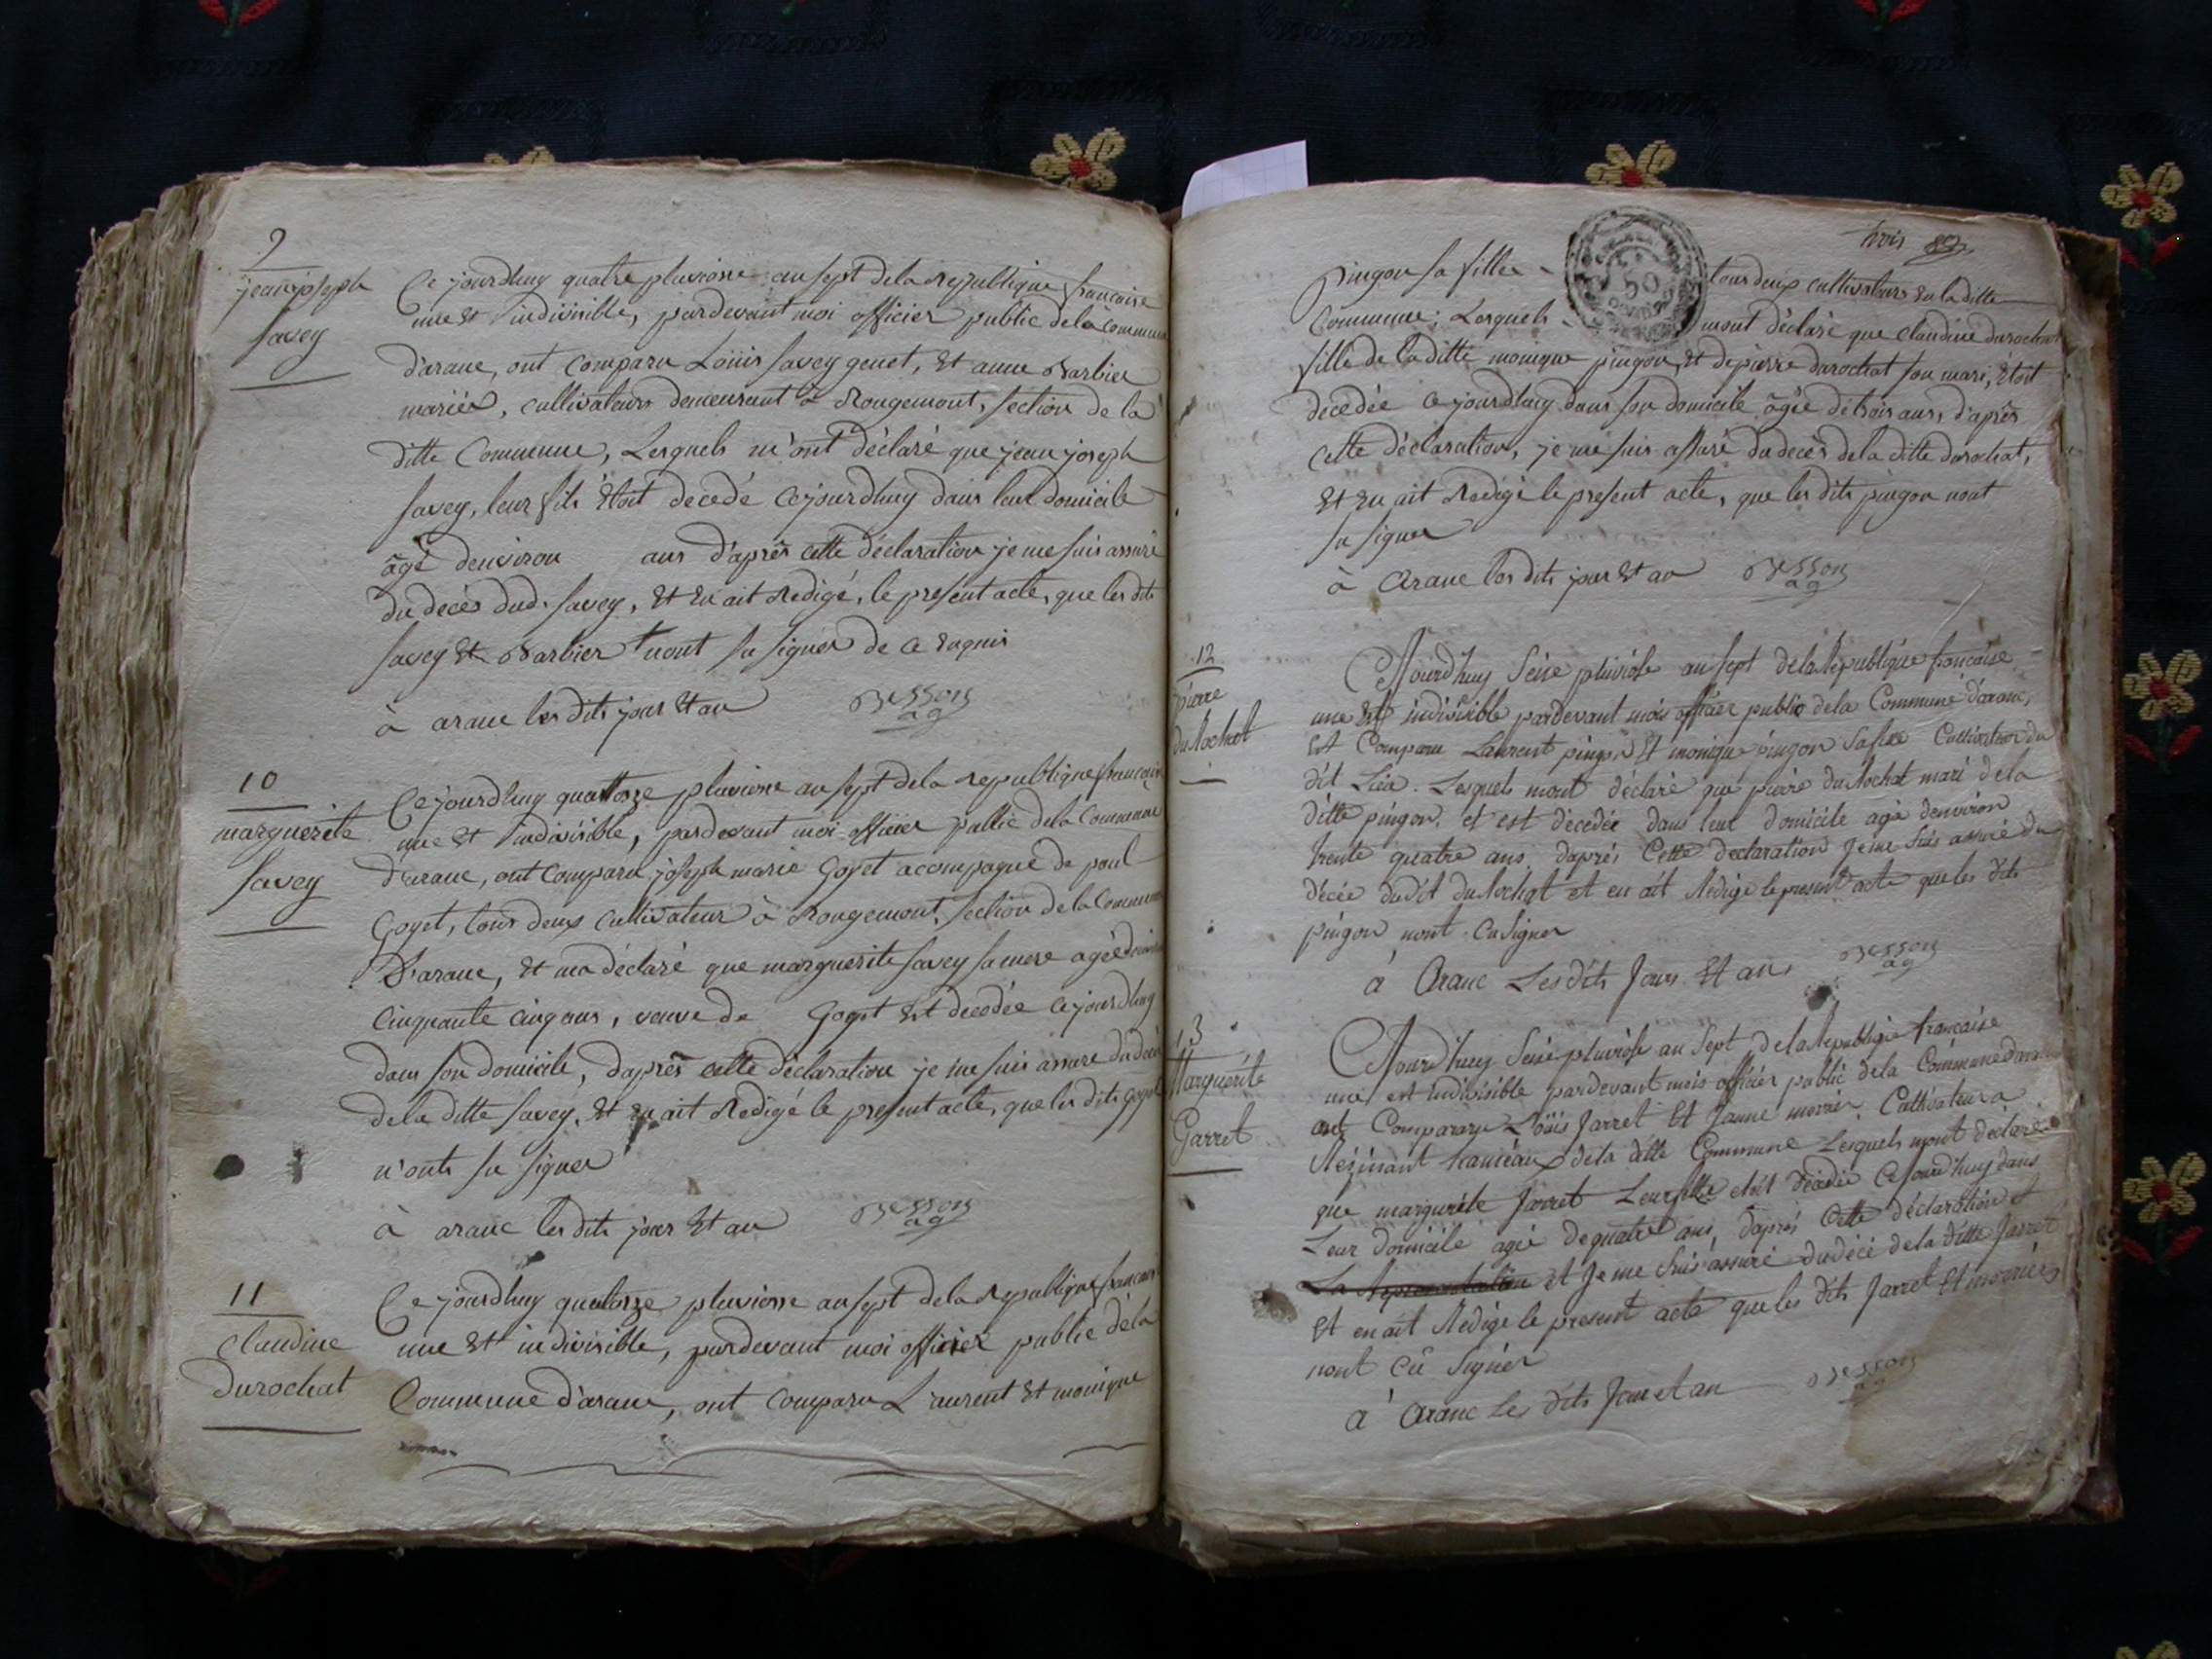 9
jean joseph
Savey
Ce jourdhuy quatre pluviose an sept de la republique francoise
une et indivisible, pardevant moi officier public de la commune
d'aranc, ont comparu Loüis Savey genet, et anne Barbier
mariés, cultivateurs demeurant à Rougemont, section de la
ditte Commune, Lesquels m'ont déclaré que jean joseph
Savey, leur fils étoit decedé cejourdhuy dans leur domicile
âgé denviron ans d'après cette déclaration je me suis assuré
du decès dud. Savey, et en ait Redigé, le present acte, que les dits
Savey et Barbier n'ont su signer de ce enquis
à aranc les dits jour et an Besson
ag
10
marguerite
Savey
Ce jourdhuy quattorze pluviose an sept de la republique francoise
une et indivisible, pardevant moi officier public de la Commune
d'aranc, ont comparu joseph marie Goyet acompagné de paul
Goyet, tous deux cultivateur à Rougemont, section de la Commune
D'aranc, et ma déclaré que marguerite Savey sa mere agée denviron
Cinquante cinq ans, veuve de Goyet est decedée cejourdhuy
dans son domicile, d'après cette déclaration je me suis assure du decès
de la ditte Savey, et en ait Redigé le present acte, que les dits goyet
n'onts su signer
à aranc les dits jour et an Besson
ag
11
Claudine
Durochat
Ce jourdhuy quatorze pluviose an sept de la republique francoise
une et indivisible, pardevant moi officier public de la
Commune d'aranc, ont comparu Laurent et monique
trois
pingon sa fille tous deux cultivateurs en la ditte
50
Commune; Lesquels mont déclaré que Claudine durochat
fille de la ditte monique pingon, et de pierre durochat son mari, étoit
decedée cejourdhuy dans son domicile âgée de trois ans, d'après
cette déclaration, je me suis assuré du decès de la ditte durochat,
et en ait Redigé le present acte, que les dits pingon nont
su signer
à aranc les dits jour et an Besson
ag
12
pierre
du Rochat
Cejourdhuy Seise pluviose an sept de la Republique francaise
une et indivisible pardevant mois officier public de la Commune d'aranc,
est Comparu Laurent pingon et monique pingon Sa fille Cultivateur du
dit Lieu. Lesquels mont déclaré que pierre du Rochat mari de la
ditte pingon. et est décedée dans leur domicile agé denviron
trente quatre ans. daprés Cette declaration Je me suis assuré du
décée dudit du Rochat et en ait Redigé le present acte que les dits
pingon nont Cu Signer
à Aranc Les dits Jours et an Besson
ag
13
Marguerite
Garret
Cejourdhuy Seise pluviose an Sept de la Republique francaise
une est indivisible pardevant mois officier public de la Commune daranc
ont Compararu Loüis Jarret et Janne Cultivateur a
Résinant hameaux de la ditte Commune Lesquels mont déclaré
que margurite Jarret Leur fille etoit décédée Cejourdhuy dans
Leur domicile agée de quatre ans, daprés Cette déclaration et
La Representation et Je me suis assuré du décé de la ditte Jarret
et en ait Redigé le present acte que les dits Jarret et
nont Cû Signer
à Aranc Les dits Jour et an Besson
ag